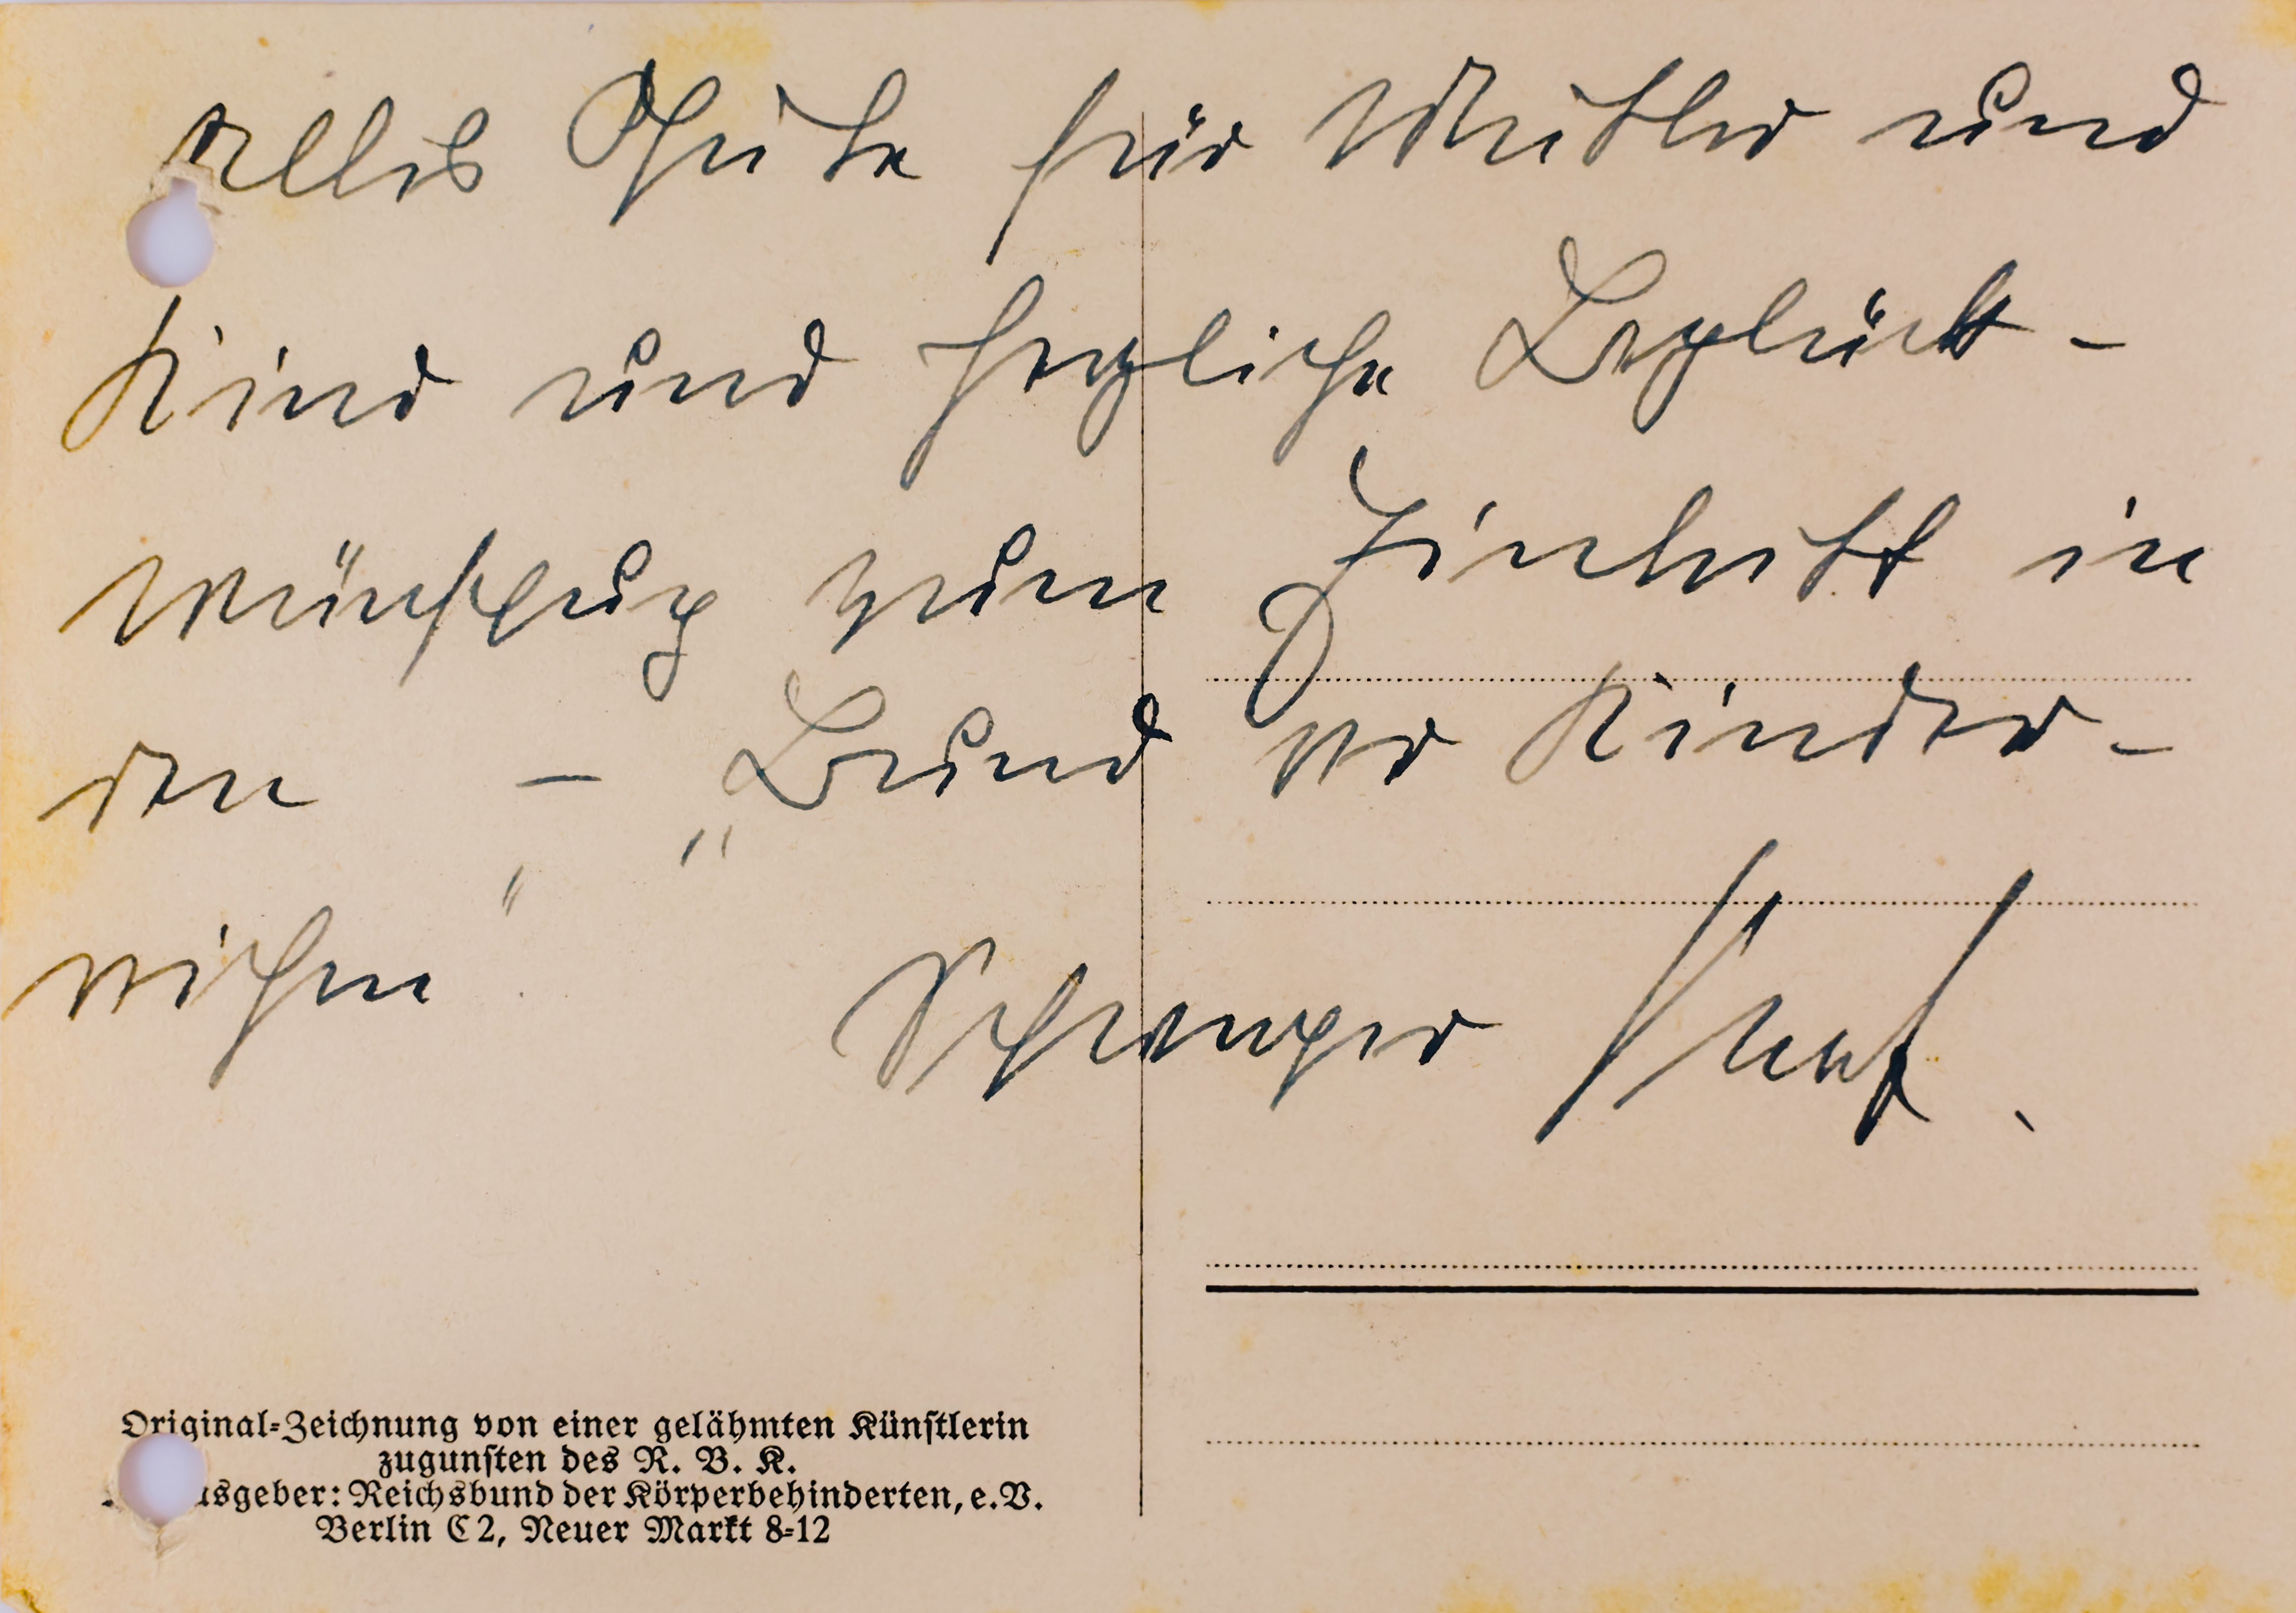 Alles Gute für Mutter und
Kind und herzliche Beglück-
wünschung zum Eintritt in
den – „Bund der Kinder-
reichen“.
Original-Zeichnung von einer gelähmten Künstlerin
zugunsten des R. B. K.
usgeber: Reichsbund der Körperbehinderten, e. V.
Berlin C 2, Neuer Markt 8-12